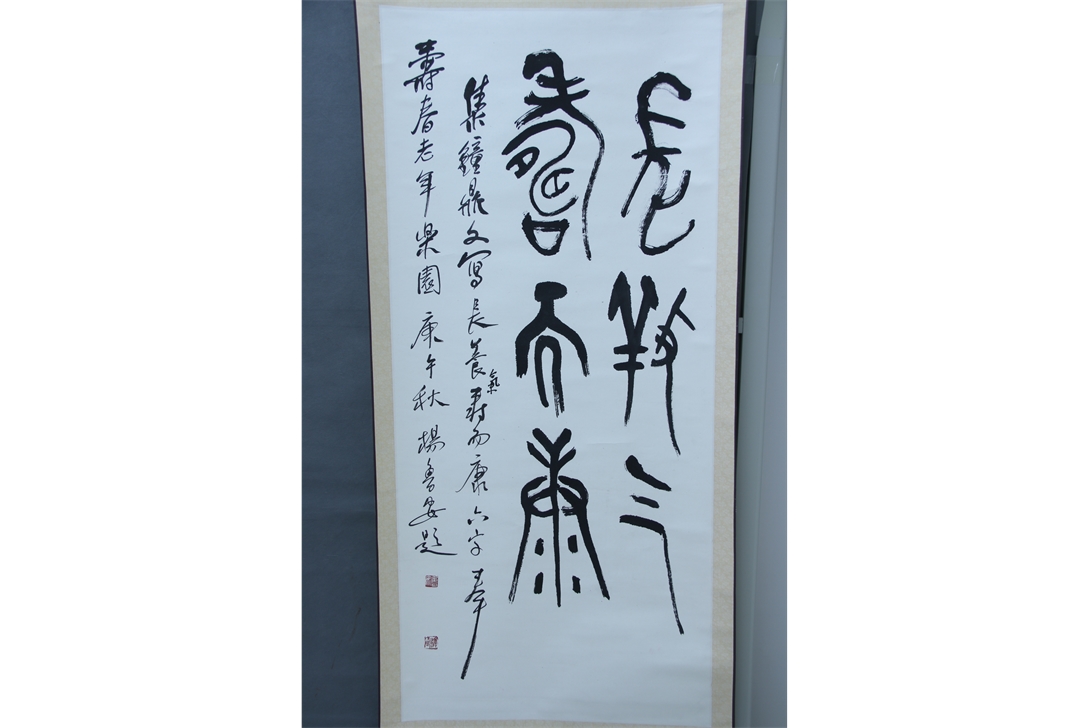 長養气
壽而康
集鐘鼎文寫長養氣壽而康六字奉
壽春老年樂園 庚午秋 楊魯安題